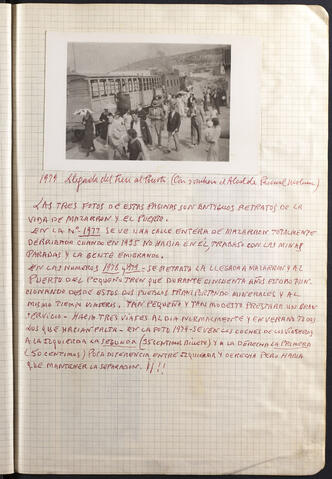 1979 Llegada del tren al Puerto (Con sombrero el Alcalde
LAS TRES FOTOS DE ESTAS PAGINAS SON ANTIGUOS RETRATOS DE LA
VIDA DE MAZARRON Y EL PUERTO.
EN LA Nº 1977 SE VE UNA CALLE ENTERA DE MAZARRON TOTALMENTE
DERRIBADA CUANDO EN 1935 NO HABIA EN EL TRABAJO CON LAS MINAS
PARADAS Y LA GENTE EMIGRANDO.
EN LAS NUMEROS 1978 y 1979 - SE RETRATA LA LLEGADA A MAZARRON Y AL
PUERTO DEL PEQUEÑO TREN QUE DURANTE CINCUENTA AÑOS ESTUVO FUN-
CIONANDO DESDE ESTOS DOS PUEBLOS TRANSPORTANDO MINERALES Y AL
MISMO TIEMPO VIAJEROS. TAN PEQUEÑO Y TAN MODESTO PRESTABA UN GRAN
SERVICIO - HACIA TRES VIAJES AL DIA NORMALMENTE Y EN VERANO TODOS
LOS QUE HACIAN FALTA - EN LA FOTO 1979 - SE VEN LOS COCHES DE LOS VIAJEROS
A LA IZQUIERDA LA SEGUNDA (35 CENTIMOS BILLETE) Y A LA DERECHA LA PRIMERA
(50 CENTIMOS) POCA DIFERENCIA ENTRE IZQUIERDA Y DERECHA PERO HABIA
QUE MANTENER LA SEPARACION. !!!!